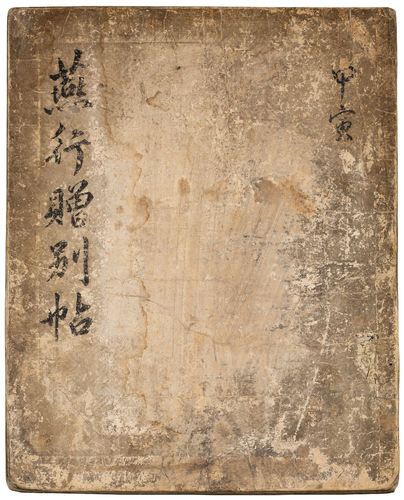 甲寅
燕行贈别帖